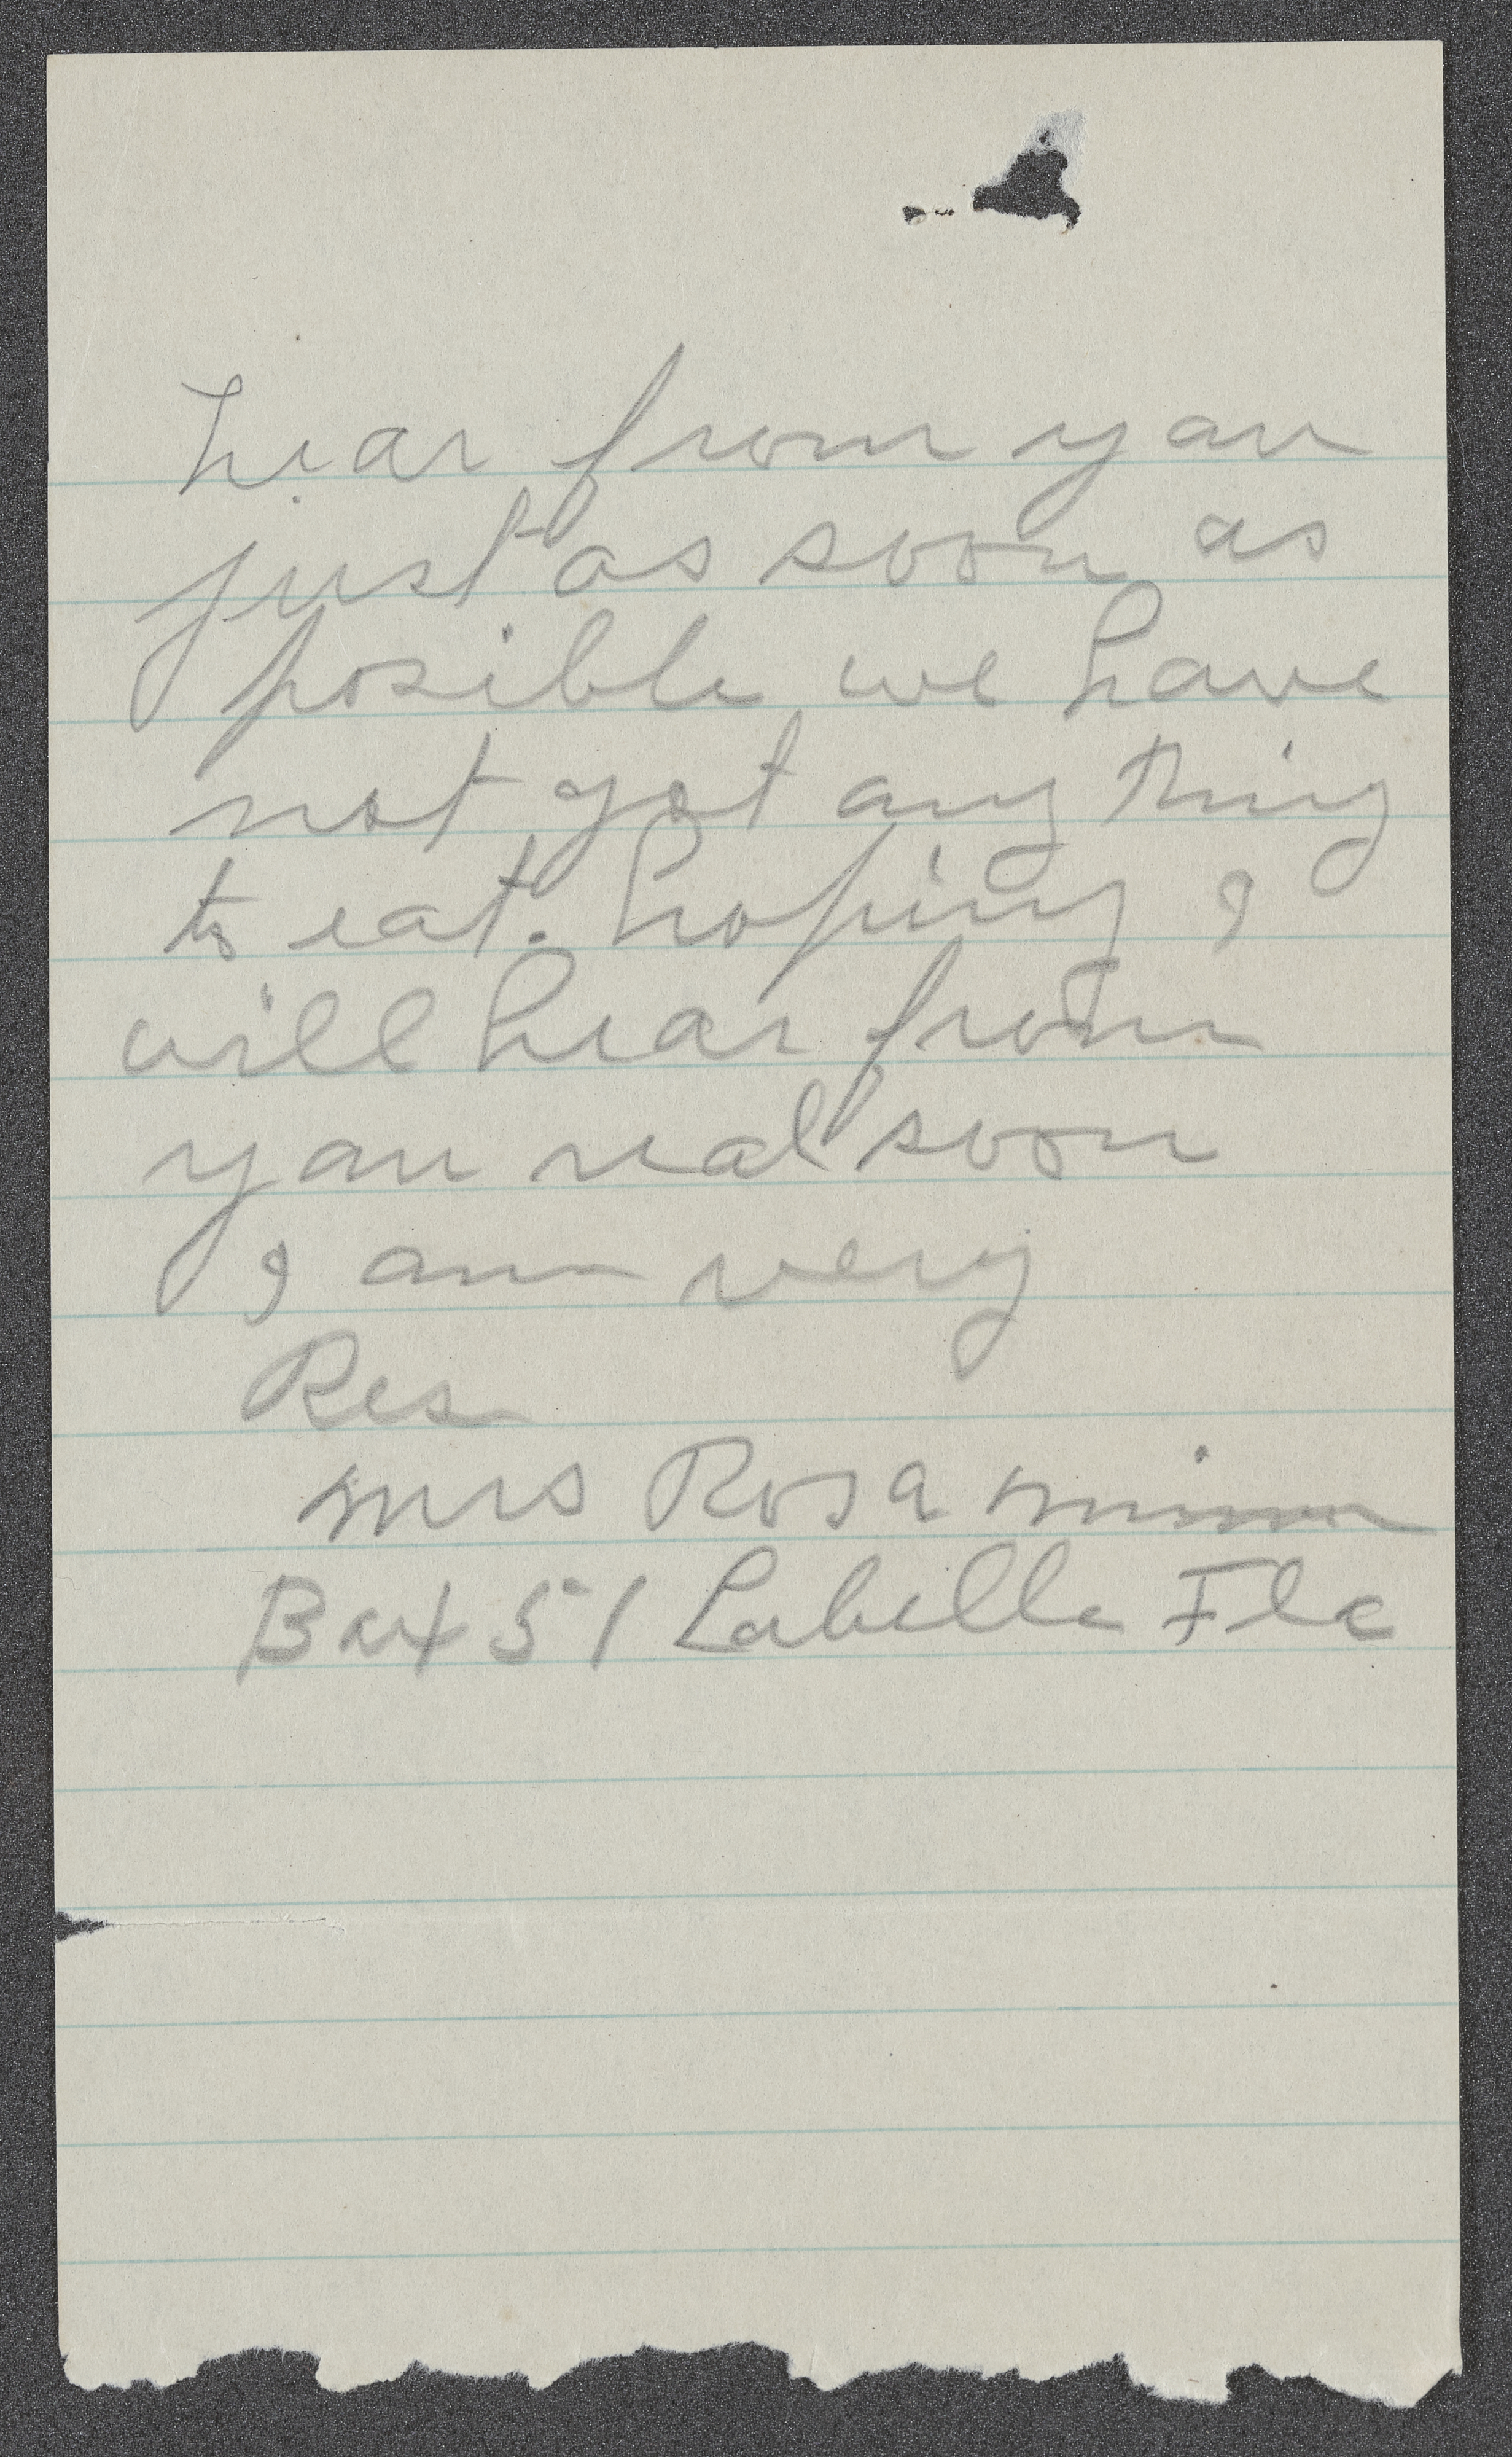 hear from you
just as soon as
posible we have
not got any thing
to eat. hoping I
will hear from
you real soon
I am very
Res
Mrs Rosa
Box 51 Labelle Fla